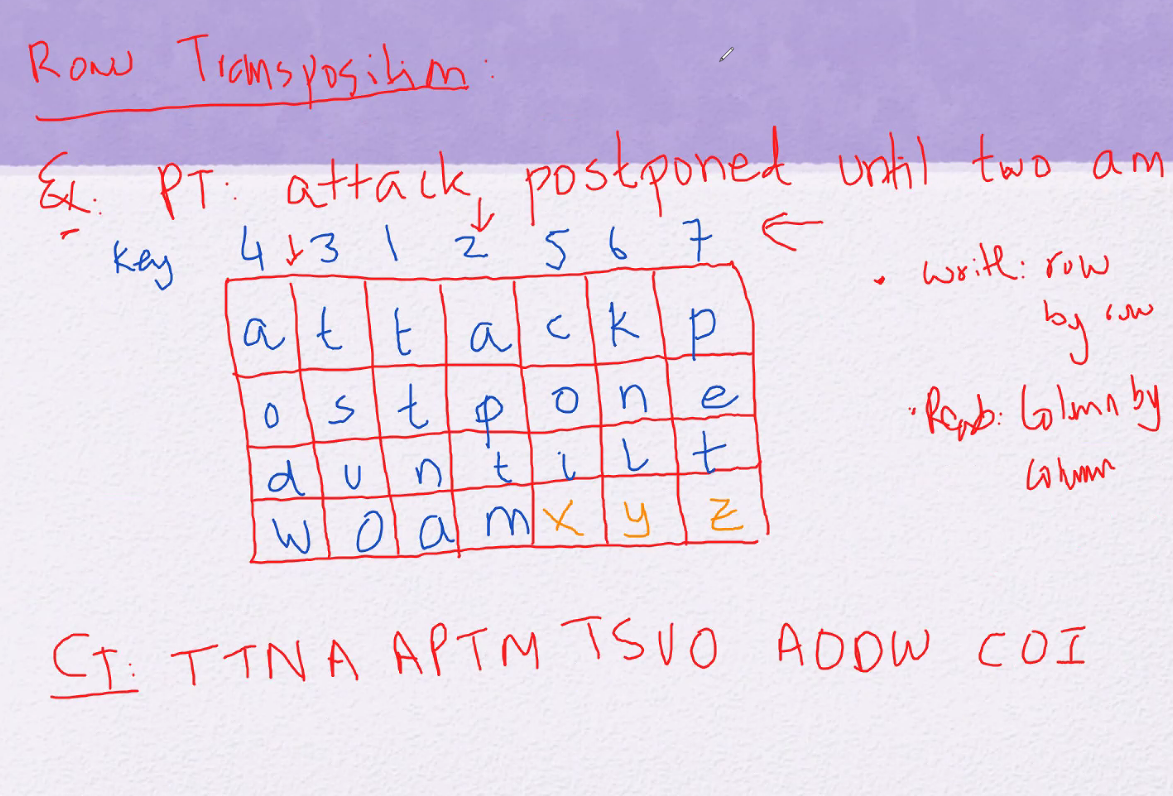 Row Transposition:
Ex: PT: attack postponed until two am
Key 4 3 1 2 5 6 7
a t t a c k p
o s t p o n e
d u n t i l t
w o a m x y z
• write: row
by row
• Read: Column by
column
CT: TTNA APTM TSUO AODW COI